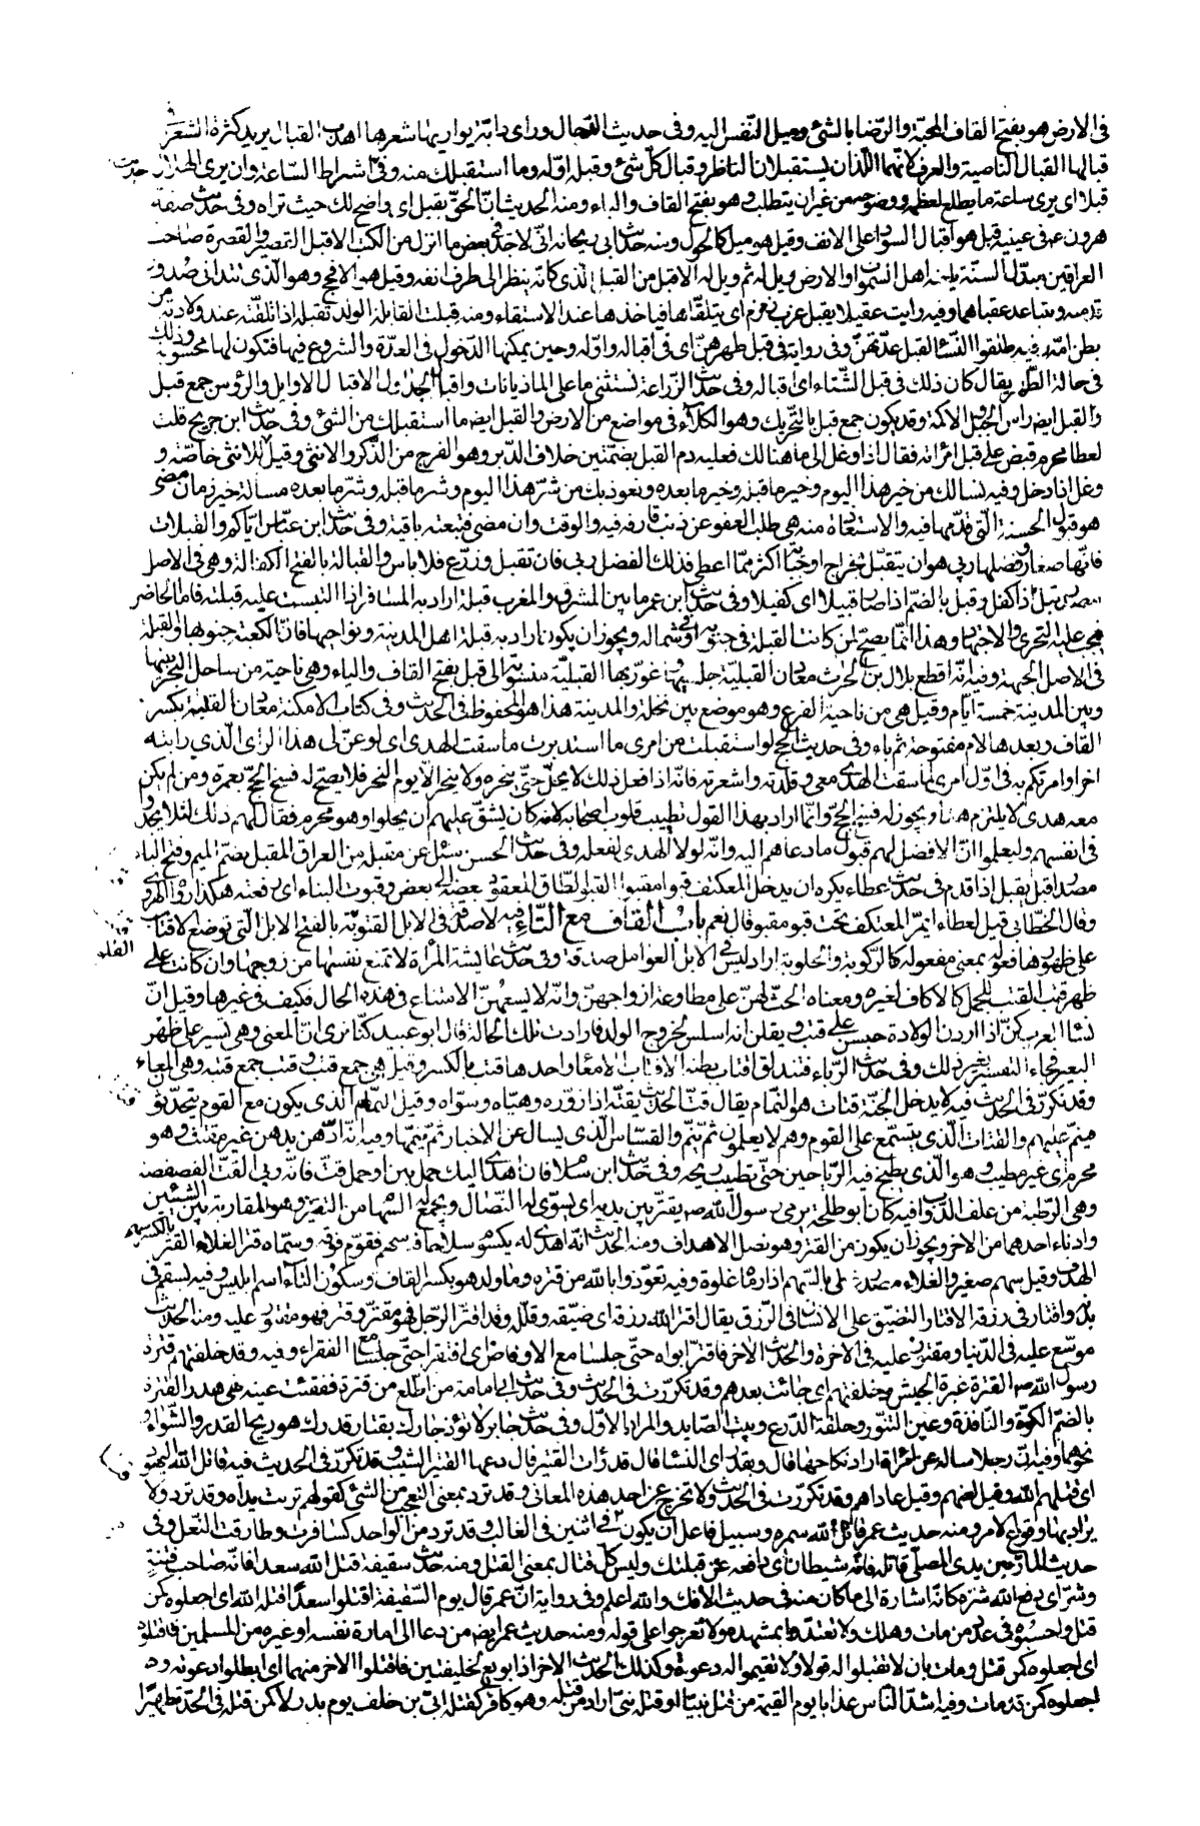 فى الارض هو بفتح القاف المحبّة والرّضا بالشئ وميل النّفس اليه وفى حديث الدّجال وراى دابّة يواريها شعرها اهدب القبال يريد كثرة الشعر فى
قبالها القبال الناصية والعرف لانّهما اللّذان يستقبلان الناظر وقبال كلّ شئ وقبله اوّله وما استقبلك منه وفى اشراط السّاعة وان يرى الهلال
قبلا اى يرى ساعة ما يطلع لعظمه ووضوحه من غير ان يتطلب وهو بفتح القاف والباء ومنه الحديث انّ الحقّ بقبل اى واضح لك حيث تراه وفى حديث صفة
هرون عم فى عينيه قبل هو اقبال السواد على الانف وقيل هو ميل كالحول ومنه حديث ابى ريحانة انّى لاجد فى بعض ما انزل من الكتب الاقبل القصير القصرة صاحب
العراقين مبدّل السنّة يلعنه اهل السموات والارض ويل له ثم ويل له الاقبل من القبل الذى كانّه ينظر الى طرف انفه وقيل هو الافحج وهو الّذى تتدانى صدور
قدميه ويتباعد عقباهما وفيه رايت عقيلا يقبل غرب زمزم اى يتلقّاها فياخذها عند الاستقاء ومنه قبلت القابلة الولد تقبله اذا تلقّته عند ولادته من
بطن امّه وفيه طلقوا النّساء لقبل عدّتهنّ وفى رواية فى قبل طهرهنّ اى فى اقباله واوّله وحين يمكنها الدّخول فى العدّة والشروع فيها فتكون لها محسوبة وذلك
فى حالة الطّهر يقال كان ذلك فى قبل الشّتاء اى اقباله وفى حديث الزّراعة نستثنى ما على الماذيانات واقبال الجداول الاقبال الاوايل والرؤس جمع قبل
والقبل ايضا راس الجبل والاكمة وقد يكون جمع قبل بالتّحريك وهو الكلاء فى مواضع من الارض والقبل ايضا ما استقبلك من الشئ وفى حديث ابن جريج قلت
لعطا محرم قبض على قبل امراته فقال اذا وغل الى ما هنالك فعليه دم القبل بضمّتين خلاف الدّبر وهو الفرج من الذّكر والانثى وقيل للانثى خاصّة و
وغل اذا دخل وفيه نسالك من خير هذا اليوم وخير ما قبله وخير ما بعده ونعوذ بك من شرّ هذا اليوم وشر ما قبله وشرّ ما بعده مسالة خير زمان مضى
هو قبول الحسنة الّتى قدّمها فيه والاستعاذة منه هى طلب العفو عن ذنب قارفه فيه والوقت وان مضى فتبعته باقية وفى حديث ابن عبّاس ايّاكم والقبلات
فانّها صغار وفضلها ربى هو ان يتقبّل بخراج او جباية اكثر ممّا اعطى فذلك الفضل ربى فان تقبل وزرع فلا باس والقبالة بالفتح الكفالة وهى فى الاصل
مصدر قبل اذا كفل وقبل بالضمّ اذا صار قبيلا اى كفيلا وفى حديث ابن عمر ما بين المشرق والمغرب قبلة اراد به المسافر اذا التبست عليه قبلته فاما الحاضر
فيجب عليه التحرى والاجتهاد وهذا انّما يصح لمن كانت القبلة فى جنوبه او فى شماله ويجوز ان يكون اراد به قبلة اهل المدينة ونواحيها فانّ الكعبة جنوبها والقبلة
فى الاصل الجهة وفيه انّه اقطع بلال بن الحرث معادن القبليّة جلسيّها وغوريّها القبليّة منسوبة الى قبل بفتح القاف والباء وهى ناحية من ساحل البحر بينها
وبين المدينة خمسة ايّام وقيل هى من ناحية الفرع وهو موضع بين نخلة والمدينة هذا هو المحفوظ فى الحديث وفى كتاب الامكنة معادن القلبة بكسر
القاف وبعدها لام مفتوحة ثم باء وفى حديث الحج لو استقبلت من امرى ما استدبرت ما سقت الهدى اى لو عنّ لى هذا الراى الّذى رايته
اخرا وامرتكم به فى اوّل امرى لما سقت الهدى معى وقلّدته واشعرته فانّه اذا فعل ذلك لا يحلّ حتّى ينحره ولا ينحر الّا يوم النحر فلا يصحّ له فسخ الحجّ بعمرة ومن لم يكن
معه هدى لا يلتزم هذا ويجوز له فسخ الحج وانّما اراد بهذا القول تطييب قلوب اصحابه لانه كان يشقّ عليهم ان يحلوا وهو محرم فقال لهم ذلك لئلا يجدوا
فى انفسهم وليعلموا انّ الافضل لهم قبول ما دعاهم اليه وانّه لولا الهدى لفعله وفى حديث الحسن سئل عن مقبله من العراق المقبل بضمّ الميم وفتح الباء
مصدر اقبل يقبل اذا قدم فى حديث عطاء يكره ان يدخل المعتكف قبوا مقبوا القبو الطّاق المعقود بعضه الى بعض وقبوت البناء اى رفعته هكذا رواه الهروى
وقال الخطابى قيل لعطاء ايمرّ المعتكف تحت قبو مقبو قال نعم باب القاف مع التّاء فيه لا صدقة فى الابل القتوبة بالفتح الابل الّتى توضع الاقتاب
على ظهورها فعولة بمعنى مفعولة كالرّكوبة والحلوبة اراد ليس فى الابل العوامل صدقة وفى حديث عايشة لا تمنع المرأة نفسها من زوجها وان كانت على
ظهر قتب القتب للجمل كالاكاف لغيره ومعناه الحثّ لهنّ على مطاوعة ازواجهنّ وانّه لا يسعهنّ الامتناع فى هذه الحال فكيف فى غيرها وقيل انّ
نساء العرب كنّ اذا اردن الولادة جلسن على قتب ويقلن انه اسلس لخروج الولد فارادت تلك الحالة قال ابو عبيد كنّا نرى انّ المعنى وهى تسير على ظهر
البعير فجاء التفسير بغير ذلك وفى حديث الرّباء فتندلق اقتاب بطنه الاقتاب الامعاء واحدها قتب بالكسر وقيل هى جمع قتب وقتب جمع قتبة وهى المعاء
وقد تكرر فى الحديث فيه لا يدخل الجنّة قتّات هو النّمام يقال قتّ الحديث يقتّه اذا زوّره وهيّاه وسوّاه وقيل النمّام الذى يكون مع القوم يتحدّثون
فينمّ عليهم والقتات الّذى يتسمّع على القوم وهم لا يعلمون ثمّ ينمّ والقسّاس الّذى يسال عن الاخبار ثمّ ينمّها وفيه انّه ادّهن بدهن غير مقتّت وهو
محرم اى غير مطيب وهو الّذى يطبخ فيه الرّياحين حتّى تطيب ريحه وفى حديث ابن سلام فان اهدى اليك حمل تبن او حمل قتّ فانّه ربى القتّ الفصفصة
وهى الرّطبة من علف الدّواب فيه كان ابو طلحة يرمى ورسول الله ص يقتّر بين يديه اى يسوّى له النّصال ويجمع له السّهام من التّقتير وهو المقاربة بين الشيئين
وادناء احدهما من الاخر ويجوز ان يكون من القتر وهو نصل الاهداف ومنه الحديث انّه اهدى له يكسوم سلاحا فيه سهم فقوّم فوقه وسمّاه قتر الغلاء القتر بالكسر سهم
الهدف وقيل سهم صغير والغلاء مصدر غالى بالسّهم اذا رماه غلوة وفيه تعوّذوا بالله من قترة وما ولد هو بكسر القاف وسكون التاء اسم ابليس وفيه بسقم فى
بدنه واقتار فى رزقه الاقتار التّضييق على الانسان فى الرّزق يقال اقتر الله رزقه اى ضيّقه وقلّله وقد اقتر الرّجل فهو مقتر وقتر فهو مقتور عليه ومنه الحديث
موسّع عليه فى الدّنيا ومقتور عليه فى الاخرة والحديث الاخر فاقتر ابواه حتّى جلسا مع الاوفاض اى افتقرا حتّى جلسا مع الفقراء وفيه وقد خلفتهم قترة
رسول الله ص القترة غبرة الجيش وخلفتهم اى جائت بعدهم وقد تكرّرت فى الحديث وفى حديث ابى امامة من اطّلع من قترة ففقئت عينه فهى هدر القترة
بالضمّ الكوّة والنّافذة وعين التنّور وحلقة الدّرع وبيت الصّايد والمراد الاوّل وفى حديث جابر لا تؤذ جارك بقتار قدرك هو ريح القدر والشّواء و
نحوهما وفيه ان رجلا ساله عن امراة اراد نكاحها قال وبقدر اى النساء قال قد رات القتير قال دعها القتير الشيب وقد تكرّر فى الحديث فيه قاتل الله اليهود
اى قتلهم الله وقيل لعنهم وقيل عاداهم وقد تكرّرت فى الحديث ولا تخرج عن احد هذه المعانى وقد ترد بمعنى التعجب من الشئ كقولهم تربت يداه وقد ترد ولا
يراد بها وقوع الامر ومنه حديث عمر قاتل الله سمرة وسبيل فاعل ان يكون من اثنين فى الغالب وقد ترد من الواحد كسافرت وطارقت النّعل وفى
حديث المارّ بين يدى المصلّى قاتله فانّه شيطان اى دافعه عن قبلتك وليس كلّ قتال بمعنى القتل ومنه حديث سقيفة قتل الله سعدا فانّه صاحب فتنة
وشرّ اى دفع الله شرّه كانّه اشارة الى ما كان منه فى حديث الافك والله اعلم وفى رواية انّ عمر قال يوم السّقيفة اقتلوا سعدا قتله الله اى اجعلوه كمن
قتل واحسبوه فى عداد من مات وهلك ولا تعتدّوا بمشهده ولا تعرجوا على قوله ومنه حديث عمر ايضا من دعا الى امارة نفسه او غيره من المسلمين فاقتلوه
اى اجعلوه كمن قتل ومات بان لا تقبلوا له قولا ولا تقيموا له دعوة وكذلك الحديث الاخر اذا بويع لخليفتين فاقتلوا الاخر منهما اى ابطلوا دعوته و
اجعلوه كمن قد مات وفيه اشدّ النّاس عذابا يوم القيمة من قتل نبيّا او قتله نبىّ اراد من قتله وهو كافر كقتله ابىّ بن خلف يوم بدر لا كمن قتله فى الحدّ تطهيرا